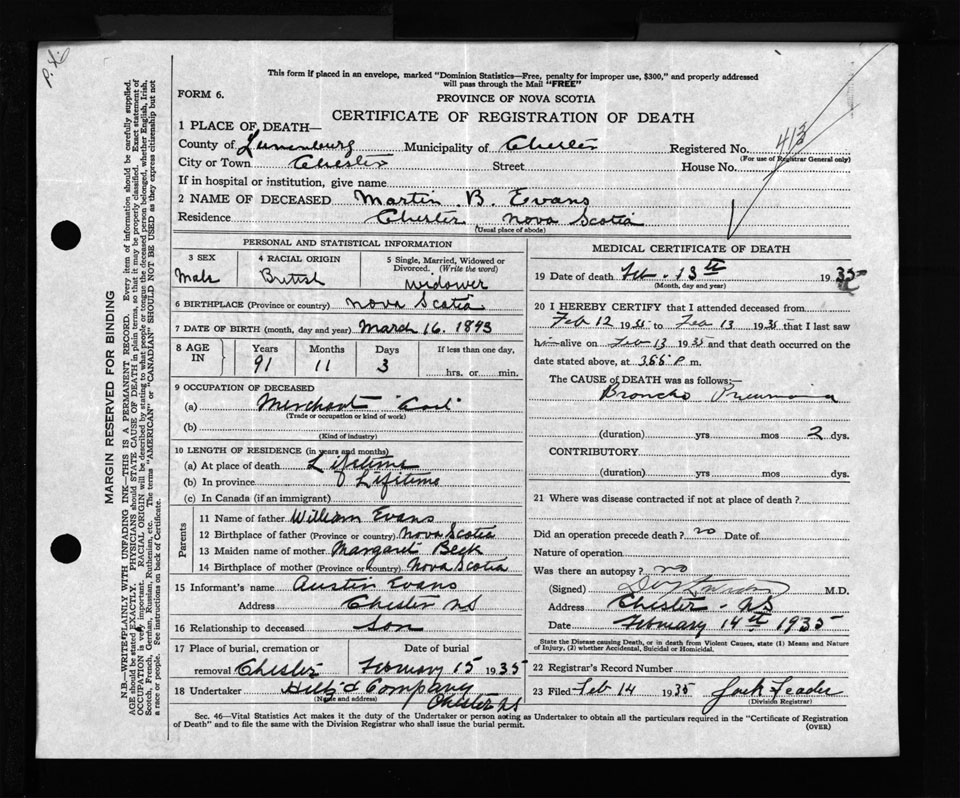 P. X6
This form if placed in an envelope, marked "Dominion Statistics—Free, penalty for improper use, $300," and properly addressed
will pass through the Mail "FREE"
FORM 6.
PROVINCE OF NOVA SCOTIA
CERTIFICATE OF REGISTRATION OF DEATH
1 PLACE OF DEATH—
County of Lunenburg Municipality of Chester Registered No.
(For use of Registrar General only)
City or Town Chester Street House No.
If in hospital or institution, give name
2 NAME OF DECEASED Martin B. Evans
Residence Chester Nova Scotia
(Usual place of abode)
PERSONAL AND STATISTICAL INFORMATION
3 SEX 4 RACIAL ORIGIN 5 Single, Married, Widowed or
Divorced. (Write the word)
Male British widower
6 BIRTHPLACE (Province or country) Nova Scotia
7 DATE OF BIRTH (month, day and year) March 16. 1843
8 AGE IN Years Months Days If less than one day,
91 11 3 hrs. or min.
9 OCCUPATION OF DECEASED
(a) Merchant
(Trade or occupation or kind of work)
(b)
(Kind of industry)
10 LENGTH OF RESIDENCE (in years and months)
(a) At place of death Lifetime
(b) In province Lifetime
(c) In Canada (if an immigrant)
Parents
11 Name of father William Evans
12 Birthplace of father (Province or country) Nova Scotia
13 Maiden name of mother Margaret Beck
14 Birthplace of mother (Province or country) Nova Scotia
15 Informant's name Austin Evans
Address Chester NS
16 Relationship to deceased Son
17 Place of burial, cremation or Date of burial
removal Chester February 15 1935
18 Undertaker & Company
(Name and address) Chester NS
MEDICAL CERTIFICATE OF DEATH
19 Date of death Feb. 13th 1935
(Month, day and year)
20 I HEREBY CERTIFY that I attended deceased from
Feb 12 1935 to Feb 13 1935 that I last saw
him alive on Feb 13 1935 and that death occurred on the
date stated above, at P m.
The CAUSE of DEATH was as follows:—
Broncho Pneumonia
(duration) yrs mos 2 dys.
CONTRIBUTORY
(duration) yrs mos dys.
21 Where was disease contracted if not at place of death?
Did an operation precede death? no Date of
Nature of operation
Was there an autopsy? no
(Signed) M.D.
Address Chester - NS
Date February 14th 1935
State the Disease causing Death, or in death from Violent Causes, state (1) Means and Nature
of Injury, (2) whether Accidental, Suicidal or Homicidal.
22 Registrar's Record Number
23 Filed Feb 14 1935
(Division Registrar)
Sec. 46—Vital Statistics Act makes it the duty of the Undertaker or person acting as Undertaker to obtain all the particulars required in the "Certificate of Registration
of Death" and to file the same with the Division Registrar who shall issue the burial permit.
(OVER)
MARGIN RESERVED FOR BINDING
N.B.—WRITE PLAINLY WITH UNFADING INK—THIS IS A PERMANENT RECORD. Every item of information should be carefully supplied.
AGE should be stated EXACTLY. PHYSICIANS should STATE CAUSE OF DEATH in plain terms, so that it may be properly classified. Exact statement of
OCCUPATION is very important. RACIAL ORIGIN will be described by stating to what people or tongue the deceased person belonged, whether English, Irish,
Scotch, French, German, Russian, Ruthenian, etc. The terms "AMERICAN" or "CANADIAN" SHOULD NOT BE USED as they express citizenship but not
a race or people. See instructions on back of Certificate.